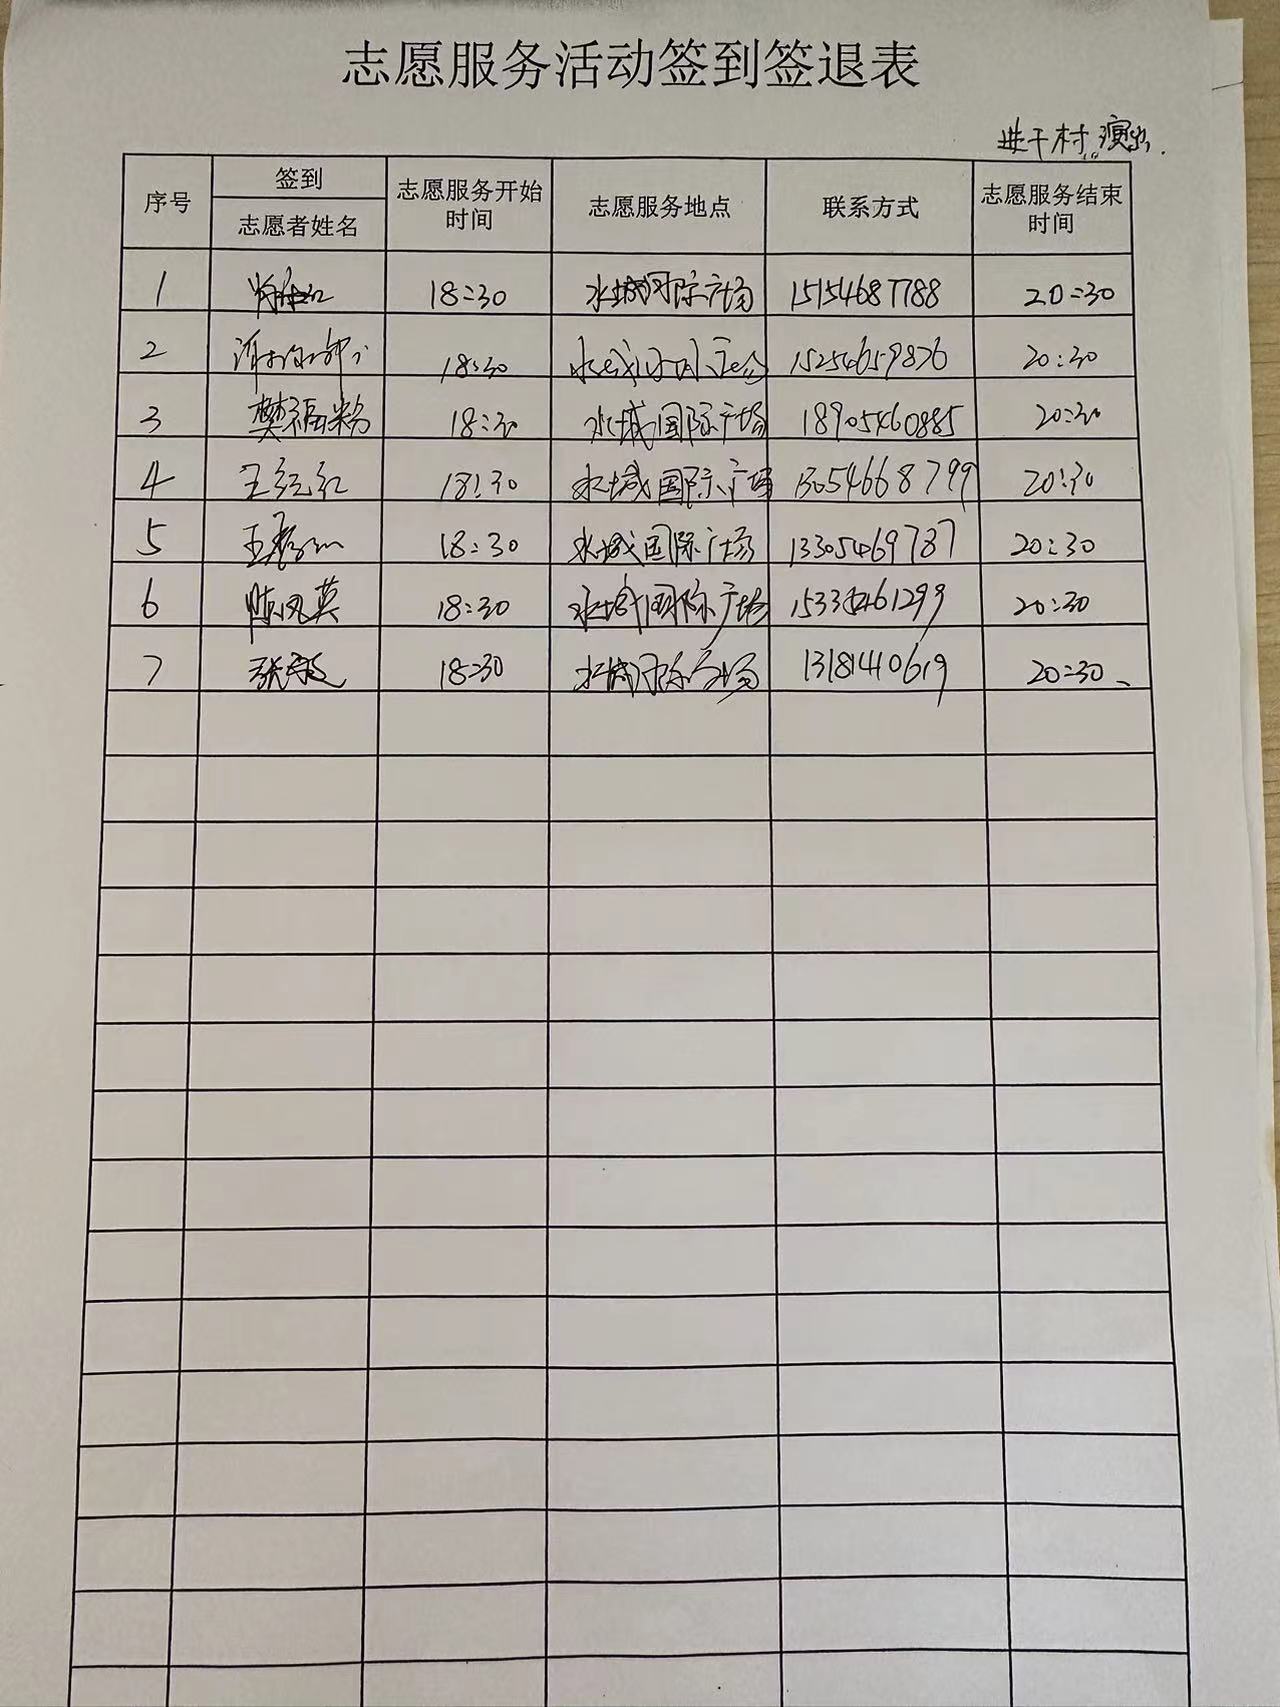 志愿服务活动签到签退表
进千村 演出
序号 签到 志愿者姓名 志愿服务开始时间 志愿服务地点 联系方式 志愿服务结束时间
1 18:30 水城国际广场 15154687788 20:30
2 18:30 水城国际广场 15254659876 20:30
3 樊福粉 18:30 水城国际广场 18905460885 20:30
4 王红红 18:30 水城国际广场 13054668799 20:30
5 18:30 水城国际广场 13305469787 20:30
6 陈凤英 18:30 水城国际广场 20:30
7 张 18:30 水城国际广场 13181410619 20:30